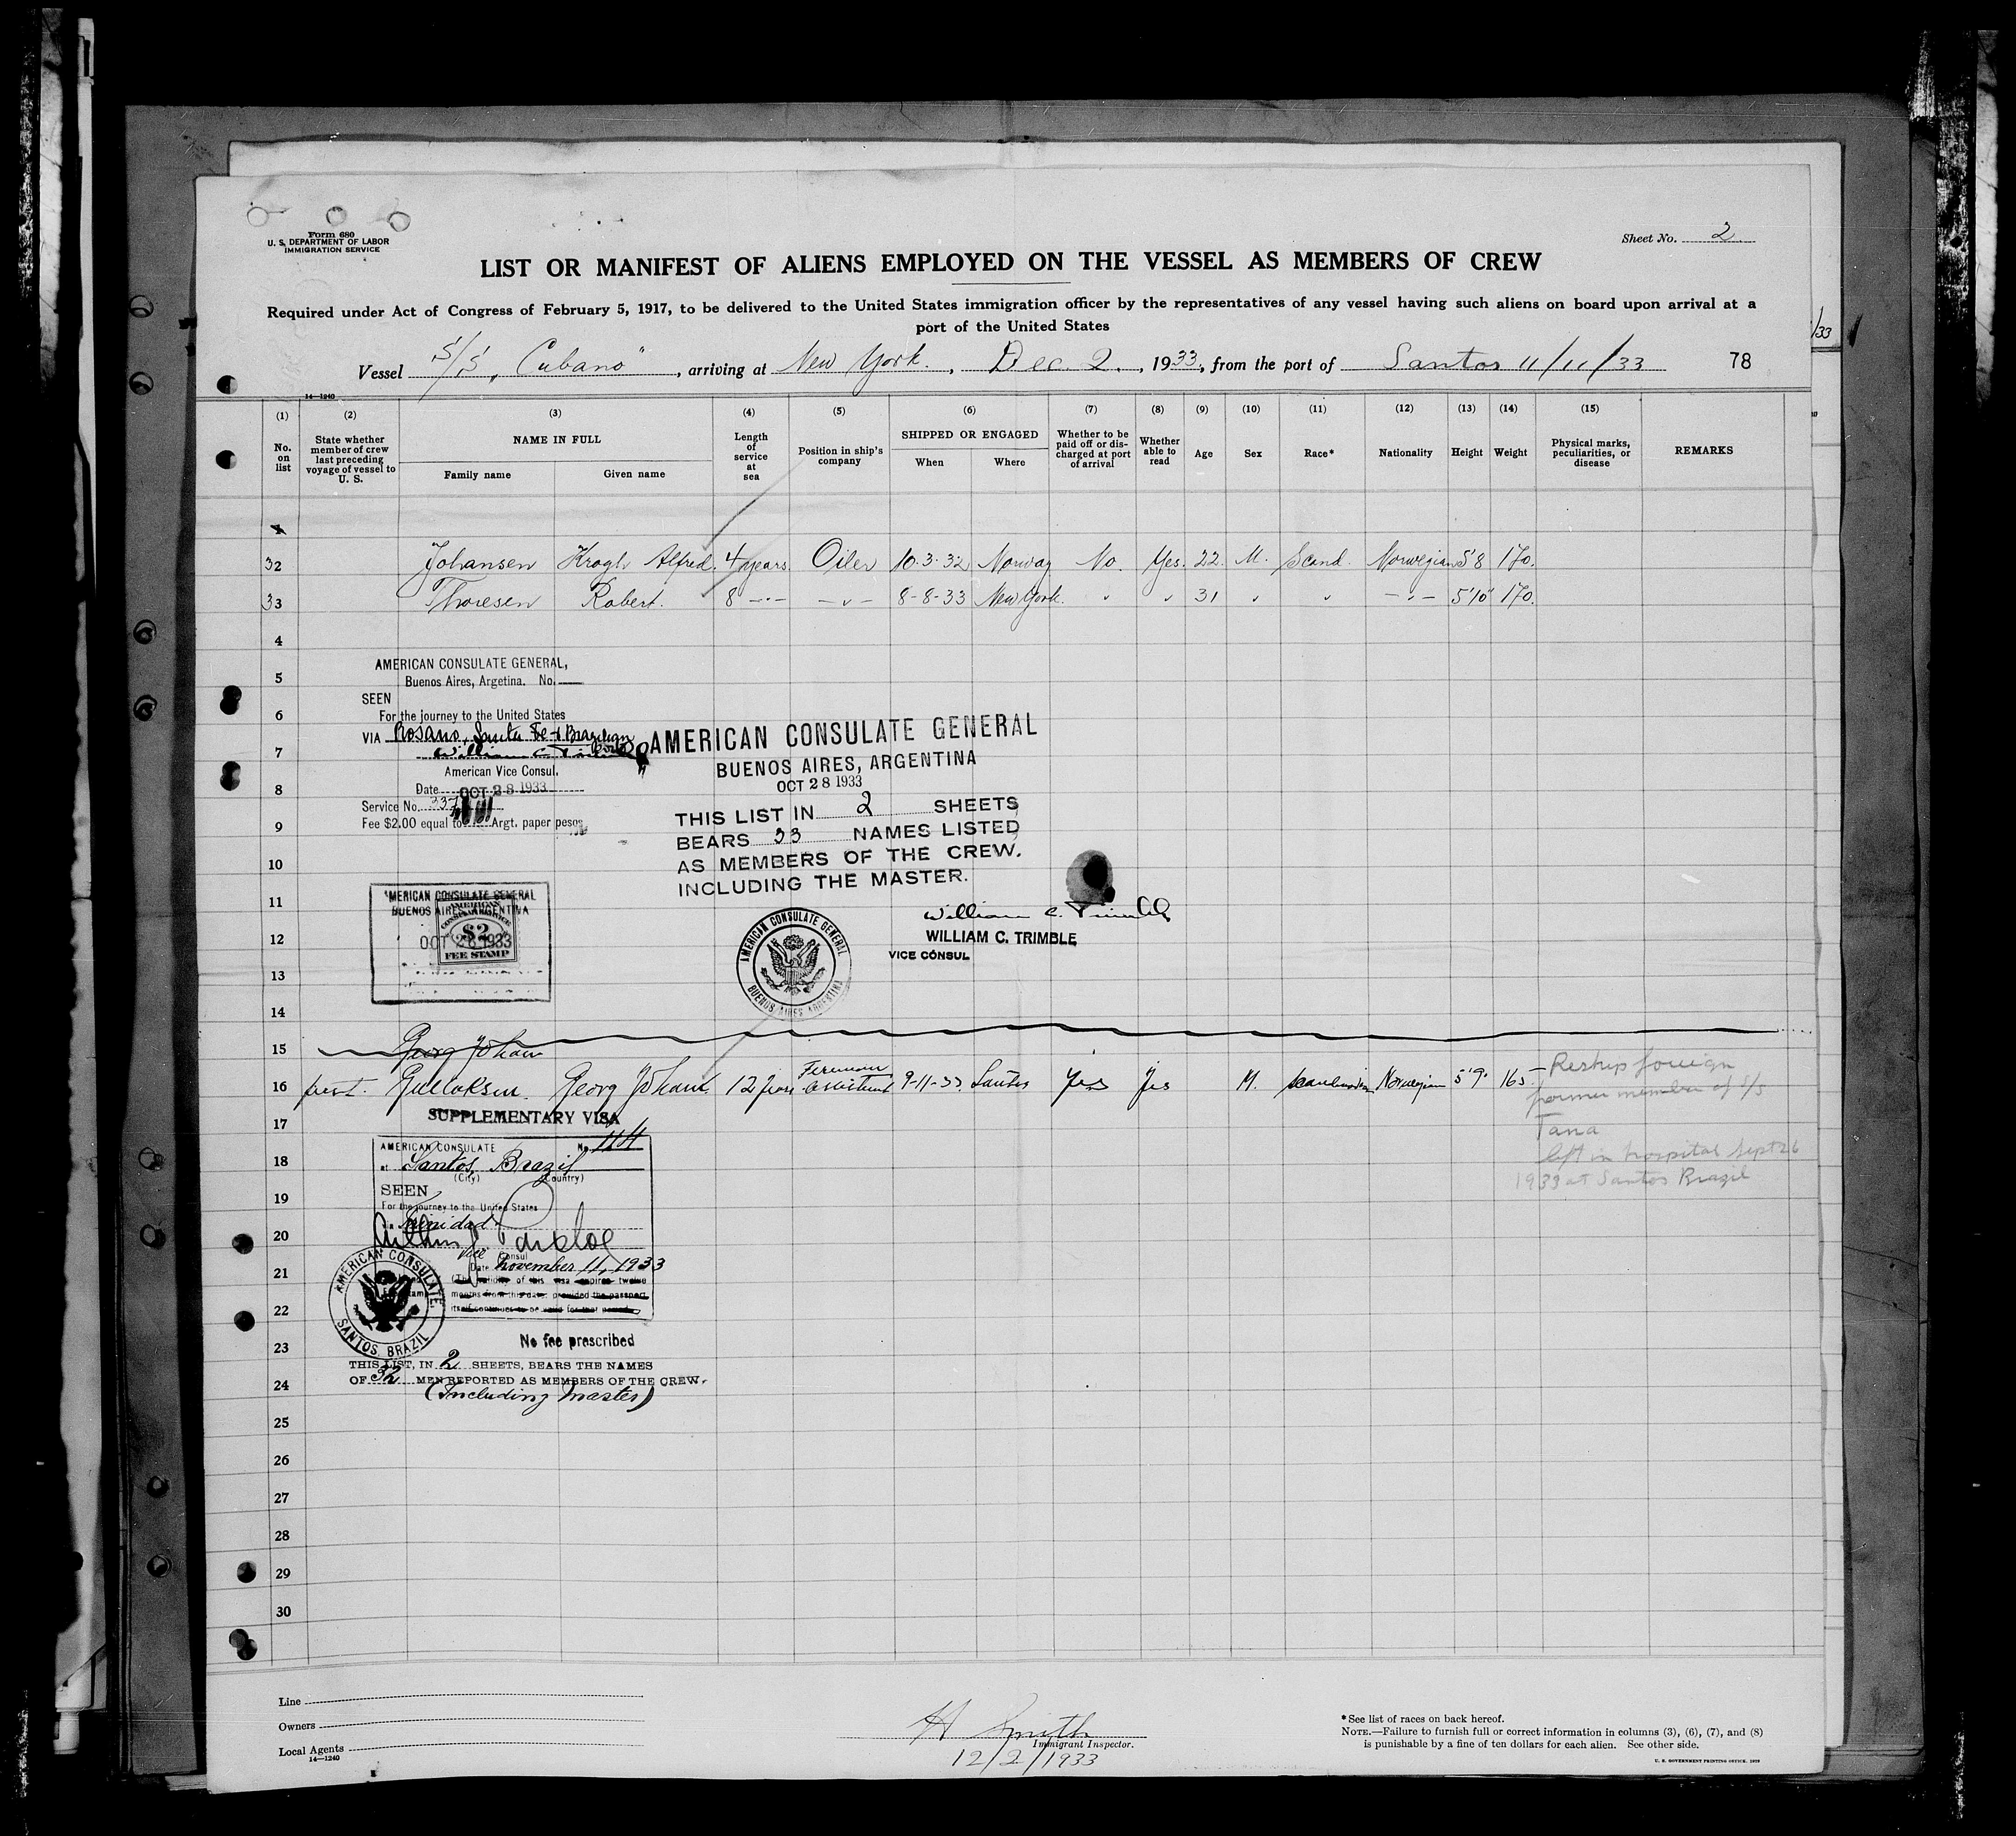 Form 680
U. S. DEPARTMENT OF LABOR
IMMIGRATION SERVICE
Sheet No. 2
LIST OR MANIFEST OF ALIENS EMPLOYED ON THE VESSEL AS MEMBERS OF CREW
Required under Act of Congress of February 5, 1917, to be delivered to the United States immigration officer by the representatives of any vessel having such aliens on board upon arrival at a
port of the United States
/33
Vessel S/S „Cubano", arriving at New York., Dec. 2., 1933, from the port of Santos 11/11/33 78
14—1240
(1) (2) (3) (4) (5) (6) (7) (8) (9) (10) (11) (12) (13) (14) (15)
No. on list
State whether member of crew last preceding voyage of vessel to U. S.
NAME IN FULL
Family name Given name
Length of service at sea
Position in ship's company
SHIPPED OR ENGAGED
When Where
Whether to be paid off or discharged at port of arrival
Whether able to read
Age
Sex
Race*
Nationality
Height
Weight
Physical marks, peculiarities, or disease
REMARKS
1
32 Johansen Krogh Alfred. 4 years Oiler 10.3.32 Norway No. Yes. 22. M. Scand. Norwegian 5'8 170.
33 Thoresen Robert. 8 -"- -"- 8-8-33 New York. " " 31 " " -"- 5'10" 170.
4
AMERICAN CONSULATE GENERAL,
5 Buenos Aires, Argetina. No.
SEEN
6 For the journey to the United States
VIA Rosario, Santa Fe & Brazilian
7 William C. Trimble
American Vice Consul.
8 Date OCT 28 1933
Service No. 337
9 Fee $2.00 equal to Argt. paper pesos
AMERICAN CONSULATE GENERAL
BUENOS AIRES, ARGENTINA
OCT 28 1933
THIS LIST IN 2 SHEETS
BEARS 33 NAMES LISTED
AS MEMBERS OF THE CREW.
INCLUDING THE MASTER.
10
11
William C. Trimble
WILLIAM C. TRIMBLE
VICE CONSUL
AMERICAN CONSULATE GENERAL
BUENOS AIRES ARGENTINA
AMERICAN CONSULATE GENERAL
BUENOS AIRES, ARGENTINA
AMERICAN
$2
12 OCT 28 1933
FEE STAMP
13
14
15 Georg Johan
16 first. Gullaksen. Georg Johan. 12 years Fireman assistent 9-11-33. Santos Yes Yes M. Scandinavian Norwegian 5'9" 165.
— Reship foreign
former member of S/S
Tana
left in hospital Sept 26
1933 at Santos Brazil
SUPPLEMENTARY VISA
17
AMERICAN CONSULATE No. 114
18 at Santos, Brazil
(City) (Country)
19 SEEN
For the journey to the United States
Trinidad
20
Vice Consul
Date November 11, 1933
21 (The validity of this visa expires twelve
months from this date, provided the passport
22 itself continues to be valid for that period.)
AMERICAN CONSULATE,
SANTOS, BRAZIL
No fee prescribed
23
THIS LIST, IN 2 SHEETS, BEARS THE NAMES
24 OF 32 MEN REPORTED AS MEMBERS OF THE CREW.
(Including Master)
25
26
27
28
29
30
Line
Owners
Local Agents
14—1240
H Smith
Immigrant Inspector.
12/2/1933
* See list of races on back hereof.
NOTE.—Failure to furnish full or correct information in columns (3), (6), (7), and (8)
is punishable by a fine of ten dollars for each alien. See other side.
U. S. GOVERNMENT PRINTING OFFICE. 1929